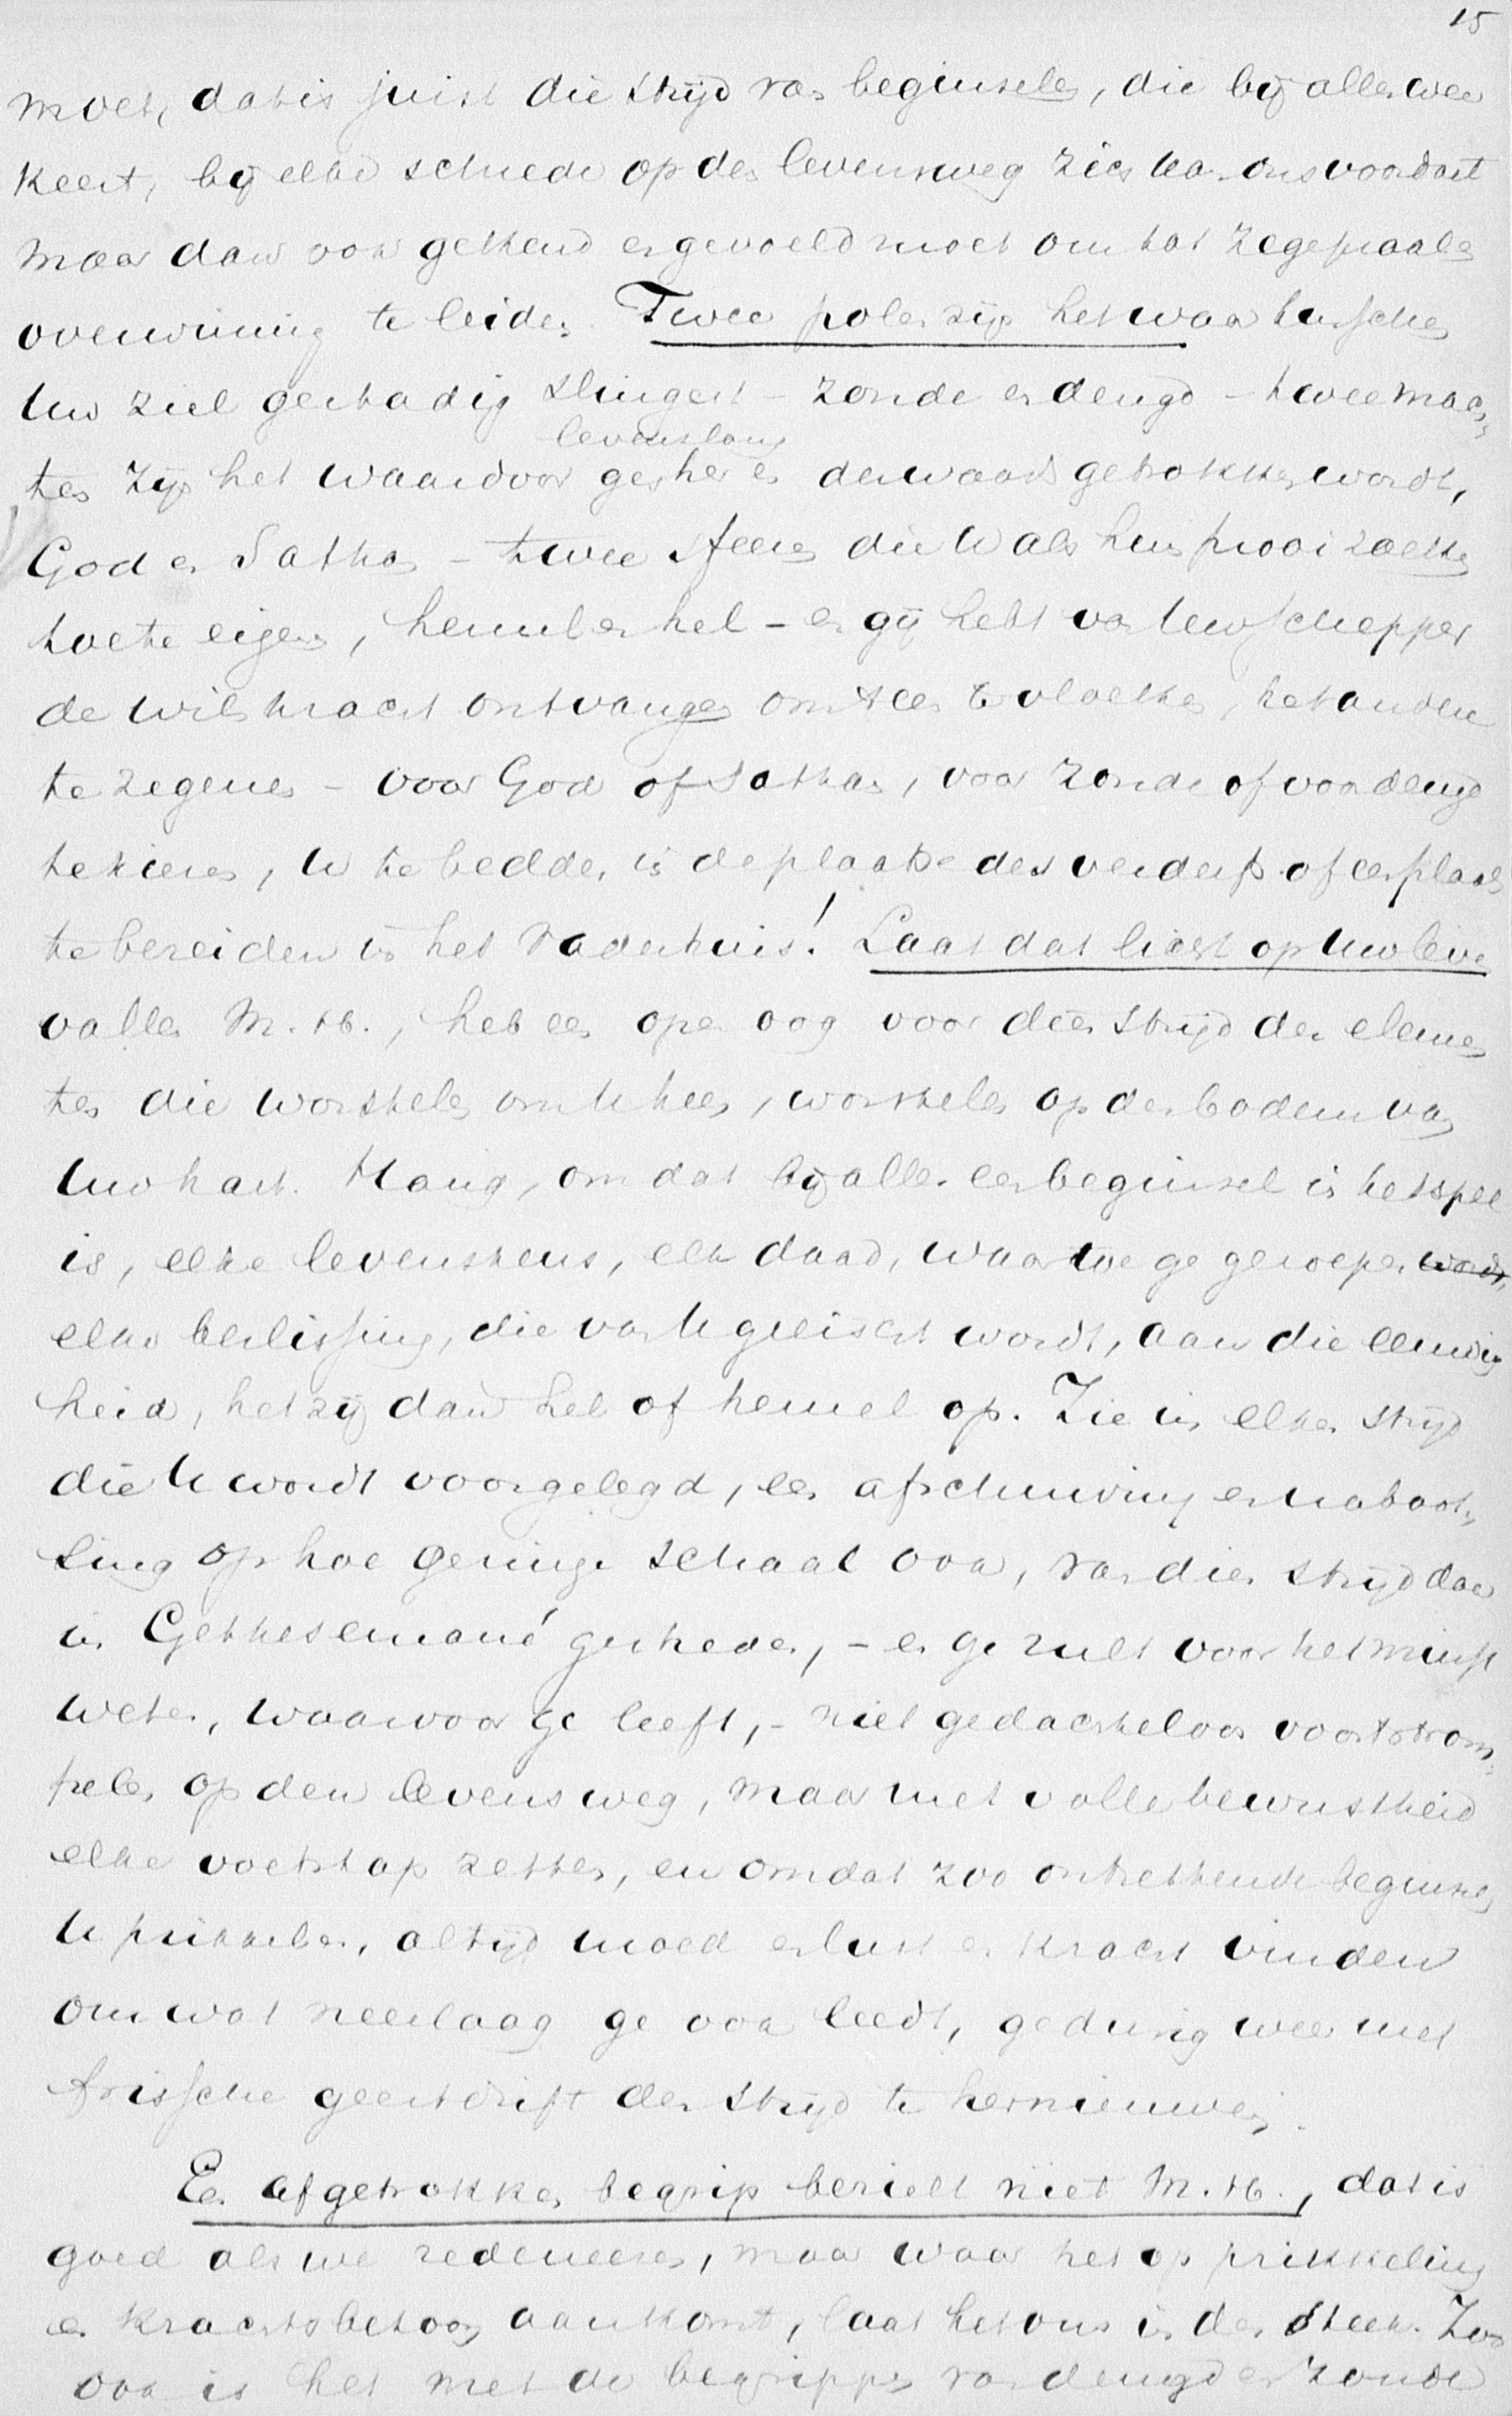 15
moet, dat is juist die strijd van beginselen, die bij alles weer
keert, bij elke schrede op den levensweg zich aan ons voordoet
maar dan ook gekend en gevoeld moet om tot zegepraal en
overwinning te leiden. Twee polen zijn het waar tusschen
Uw ziel gestadig slingert – zonde en deugd – twee mach,
levenslang
ten zijn het waardoor ge her en derwaarts getrokken wordt,
God en Sathan – twee sferen die U als hun prooi zoeken
toe te eigenen, hemel en hel – en gij hebt van Uw Schepper
de wilskracht ontvangen om het een te vloeken, het andere
te zegenen – voor God of Sathan, voor zonde of voor deugd
te kiezen, U te bedden in de plaatse des verderfs of een plaats
te bereiden in het Vaderhuis! Laat dat licht op Uw leven
vallen M. H., heb een open oog voor dien strijd der elemen
ten die worstelen om U heen, worstelen op den bodem van
Uw hart. Hang, omdat bij alles een beginsel in het spel
is, elke levenskeus, elke daad, waartoe ge geroepen wordt,
elke beslissing, die van U geëischt wordt, aan die eeuwig
heid, het zij dan hel of hemel op. Zie in elken strijd
die U wordt voorgelegd, een afschaduwing en naboot,
sing op hoe geringe schaal ook, van dien strijd daar
in Gethsemané gestreden, – en ge zult voor het minst
weten, waarvoor ge leeft, – niet gedachteloos voortstrom,
pelen op den levensweg, maar met volle bewustheid
elke voetstap zetten, en omdat zoo ontzettende beginselen
U prikkelen, altijd moed en lust en kracht vinden
om wat neerlaag ge ook leedt, gedurig weer met
frissche geestdrift den strijd te hernieuwen.
Een afgetrokken begrip bezielt niet M. H., dat is
goed als we redeneeren, maar waar het op prikkeling
en krachtsbetoon aankomt, laat het ons in den steek. Zoo
ook is het met de begrippen van deugd en zonde